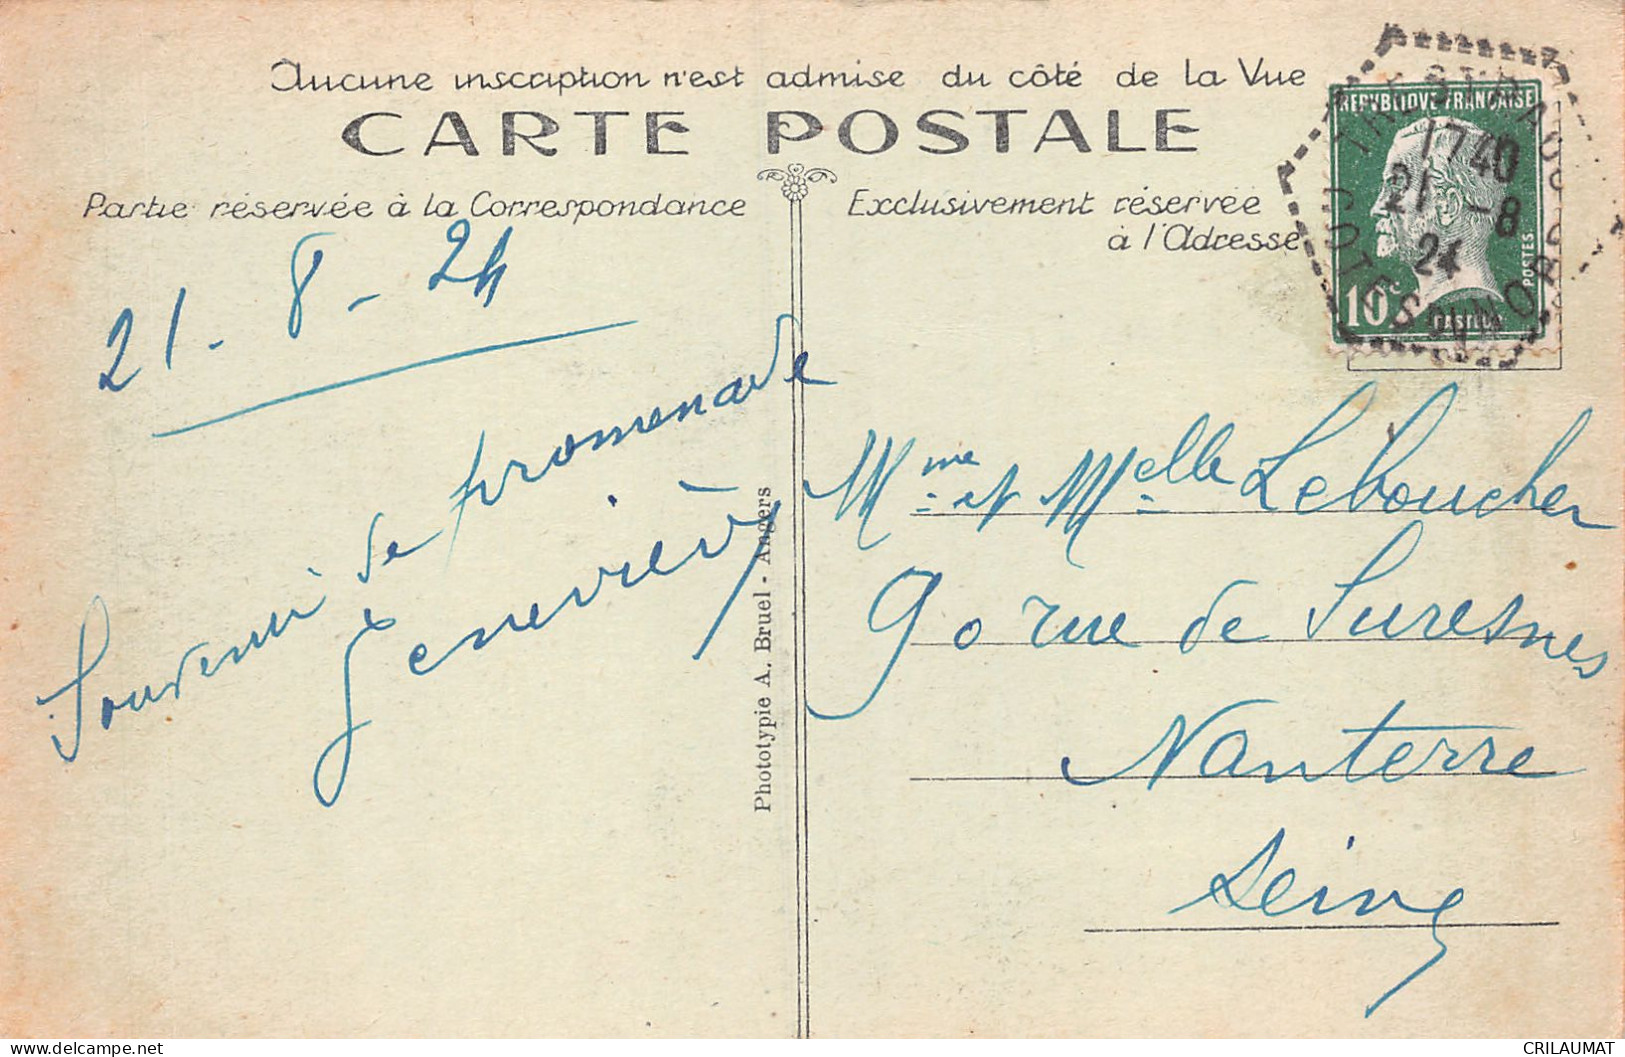 Aucune inscription n'est admise du côté de la Vue
CARTE POSTALE
Partie réservée à la Correspondance
Exclusivement réservée
à l'Adresse
REPVBLIQVE FRANÇAISE
10c
POSTES
TRESTRAOU
17 40
21 -8
24
COTES DU NORD
21 - 8 - 24
Souvenir de promenade
Geneviève
Phototypie A. Bruel - Angers
Mme et Melle Leboucher
90 rue de Suresnes
Nanterre
Seine
CRILAUMAT